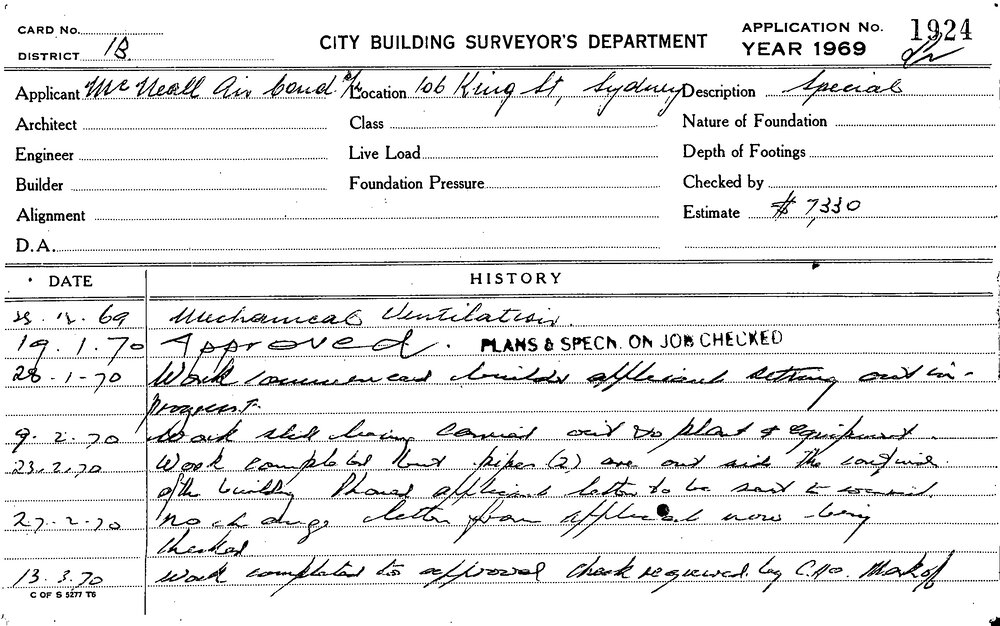 CARD No.
DISTRICT 1B.
CITY BUILDING SURVEYOR'S DEPARTMENT
APPLICATION No. 1924
YEAR 1969
Applicant Mc Neall Air Cond P/L Location 106 King St, Sydney Description Special
Architect Class Nature of Foundation
Engineer Live Load Depth of Footings
Builder Foundation Pressure Checked by
Alignment Estimate $ 7,330
D.A.
DATE HISTORY
12. 69 Mechanical Ventilation.
19. 1. 70 Approved. PLANS & SPECN. ON JOB CHECKED
28. 1. 70 Work commenced builder applicant setting out in-
progress.
9. 2. 70 Work still being carried out to plant & equipment.
23. 2. 70 Work completed but pipes (2) are out side the confines
of the building Phoned applicant letter to be sent to council.
27. 2. 70 No change letter from applicant now being
checked
13. 3. 70 Work completed to approval check required by
C OF S 5277 T6